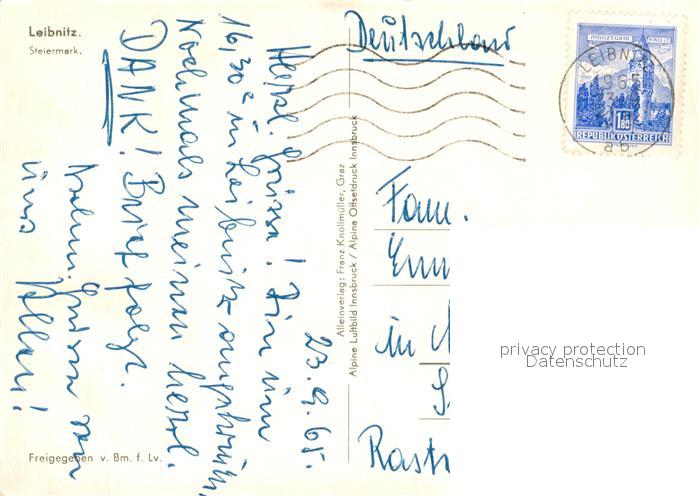 Leibnitz.
Steiermark.
23.9.65.
Herzl. Grüsse! Bin um
16,30 in Leibnitz
Nochmals meinen herzl.
DANK! Brief folgt.
Grüsse von
uns Allen!
Freigegeben v. Bm. f. Lv.
Alleinverlag: Franz Knollmüller, Graz
Alpine Luftbild Innsbruck / Alpina Offsetdruck Innsbruck
Deutschland
MÜNZTURM HALL i. T.
1.80
REPUBLIK ÖSTERREICH
LEIBNI
Fam.
in
Rast
privacy protection
Datenschutz